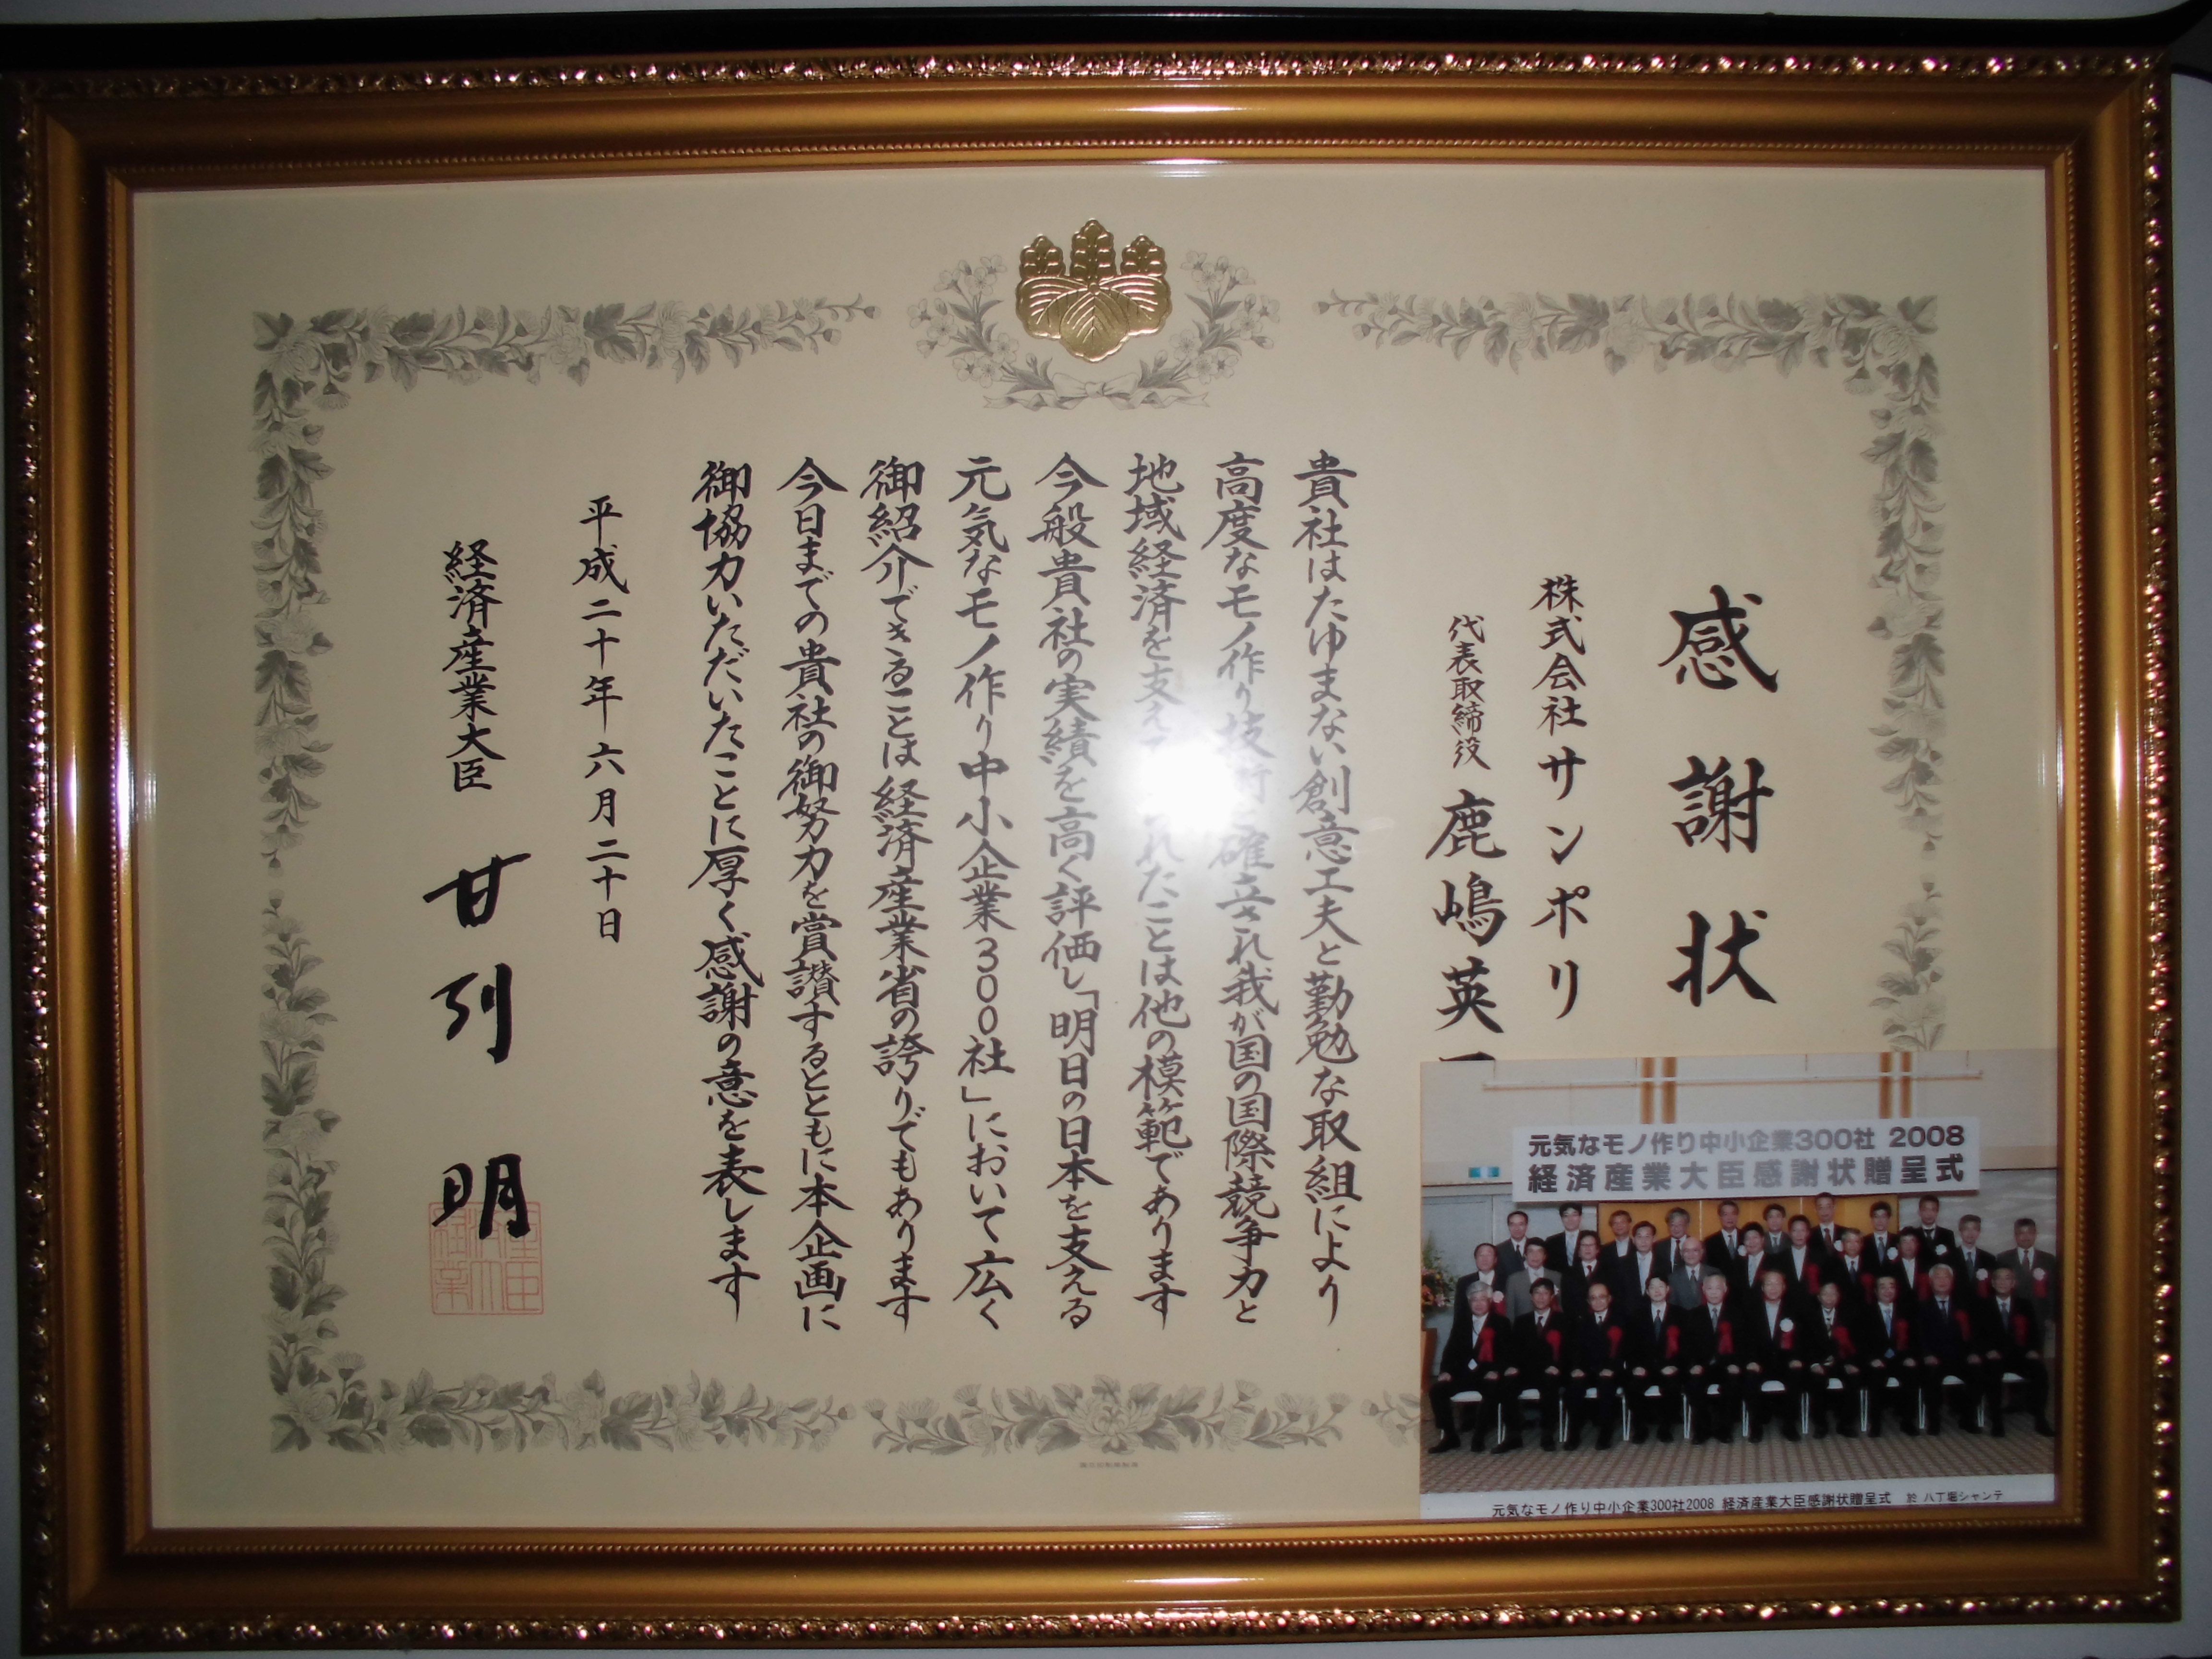 感謝状
株式会社サンポリ
代表取締役 鹿嶋英
貴社はたゆまない創意工夫と勤勉な取組により
高度なモノ作り技術を確立され我が国の国際競争力と
地域経済を支えてこられたことは他の模範であります
今般貴社の実績を高く評価し「明日の日本を支える
元気なモノ作り中小企業300社」において広く
御紹介できることは経済産業省の誇りでもあります
今日までの貴社の御努力を賞讃するとともに本企画に
御協力いただいたことに厚く感謝の意を表します
平成二十年六月二十日
経済産業大臣 甘利 明
元気なモノ作り中小企業300社 2008
経済産業大臣感謝状贈呈式
元気なモノ作り中小企業300社2008 経済産業大臣感謝状贈呈式 於 八丁堀シャンテ